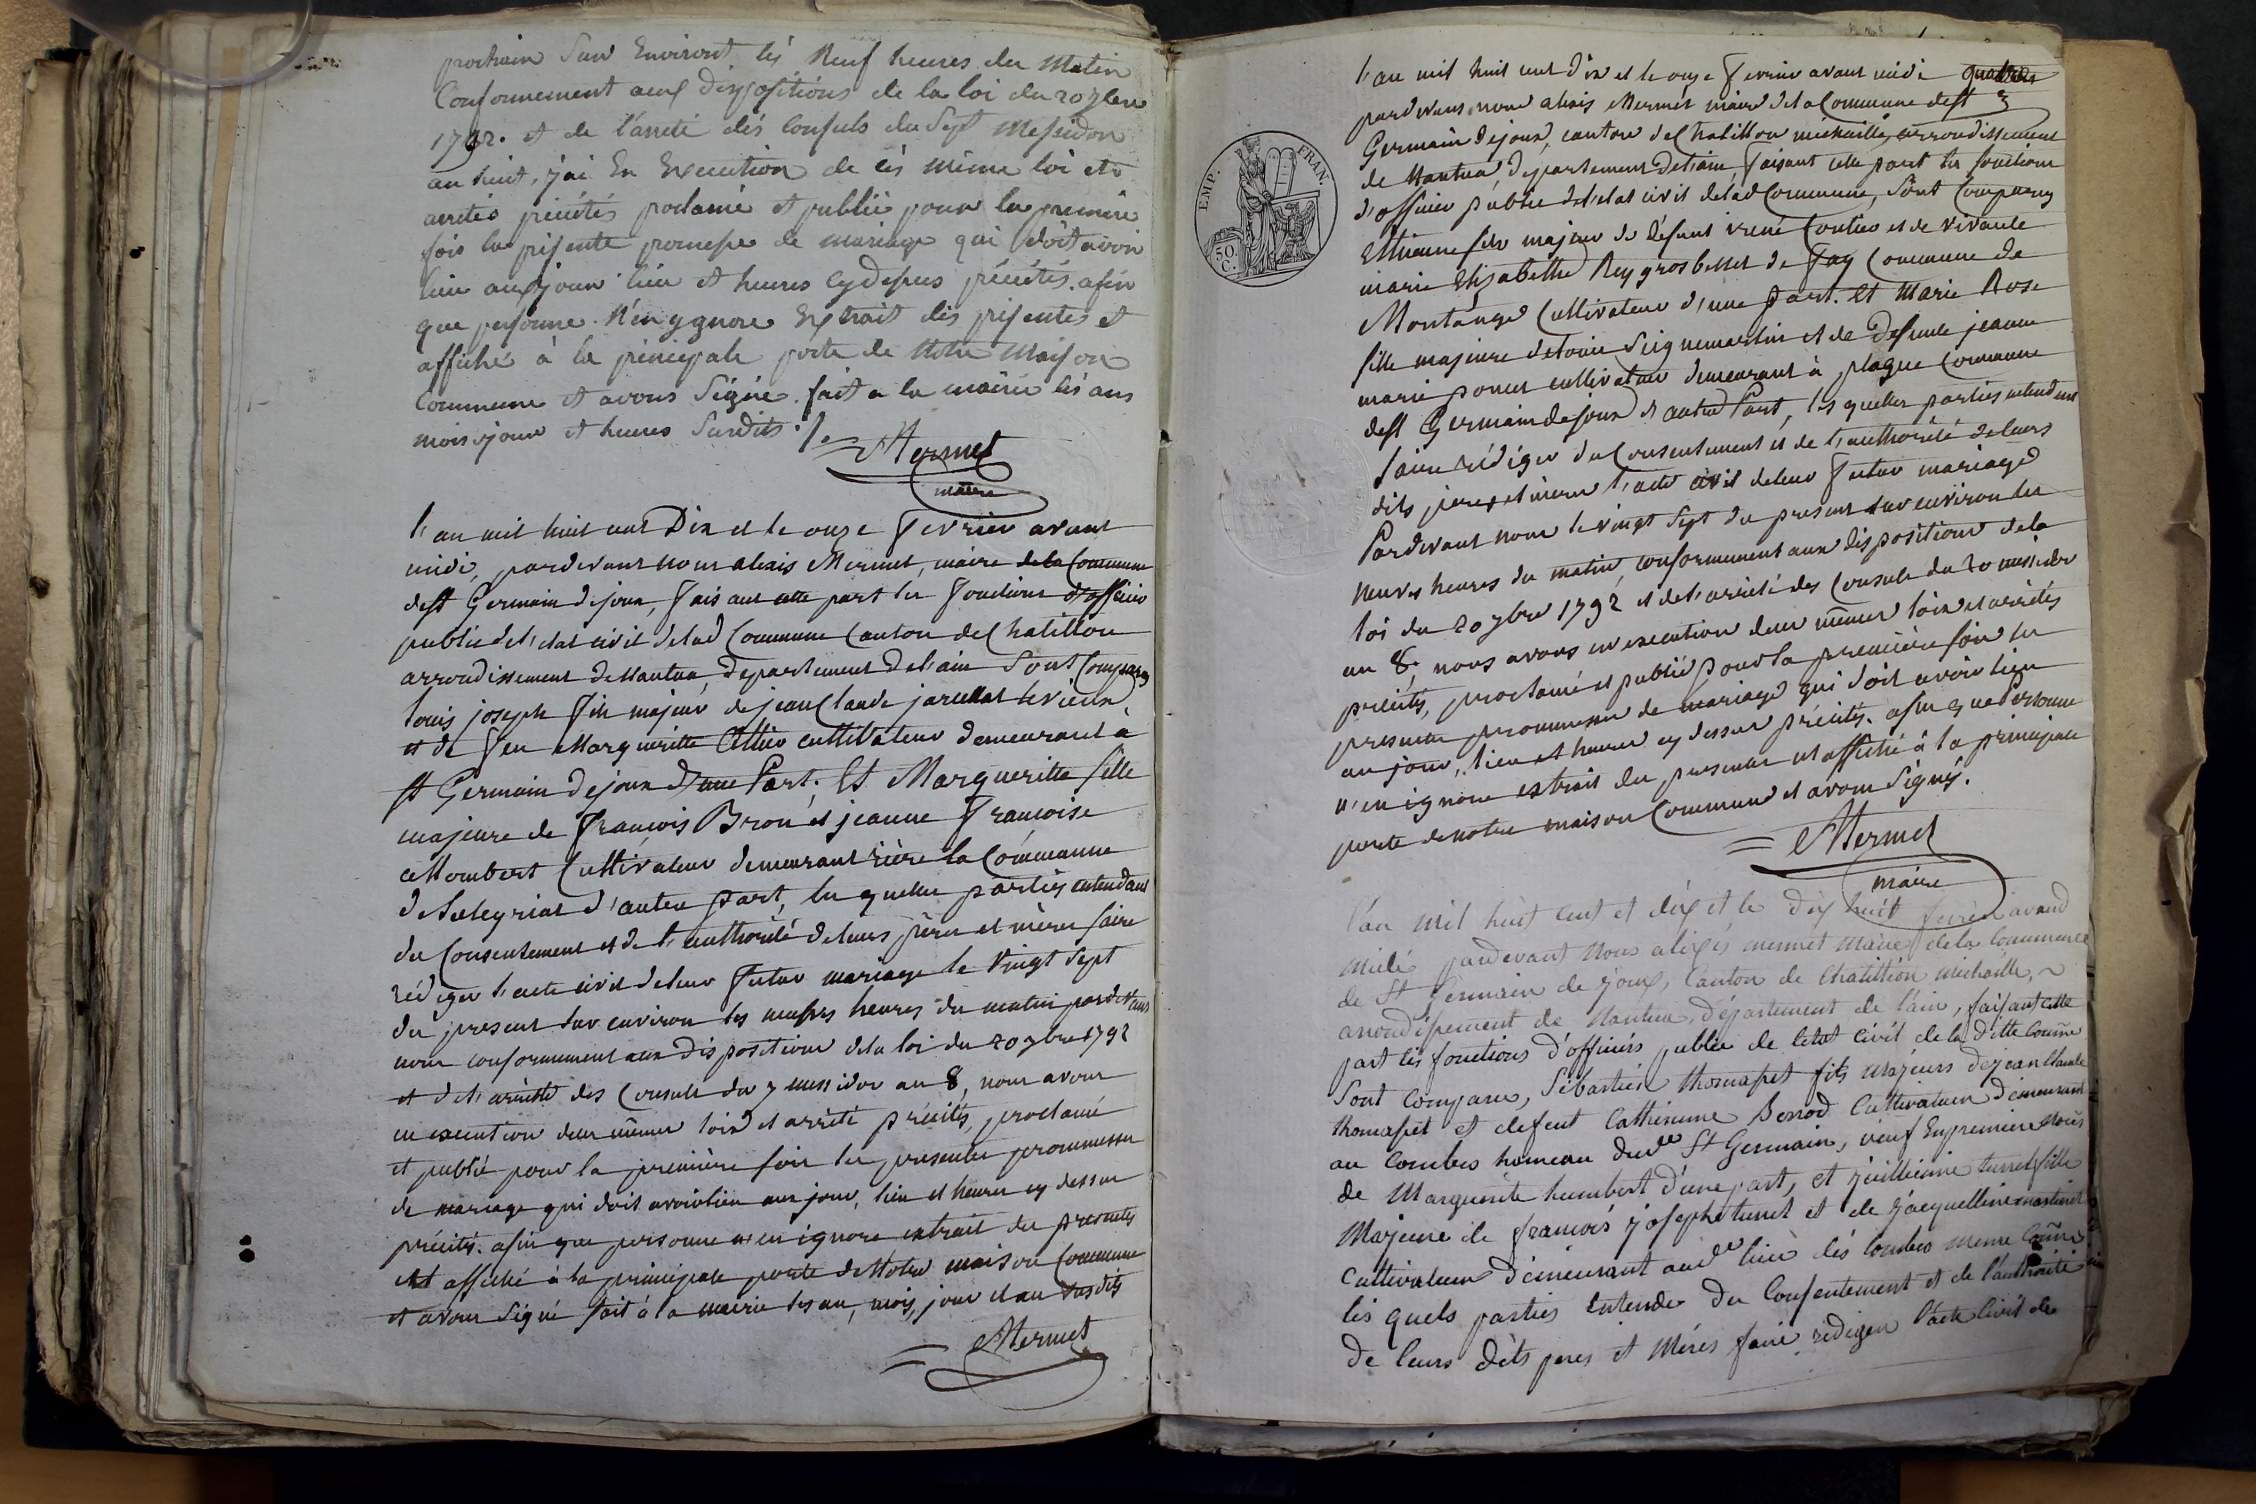 prochain Sur Environt les Neuf heures du Matin
Conformement aux dispositions de la loi du 20 7bre
1792. et de l'arreté dés Consuls du Sept Messidor
an huit, j'ai En Execution de cés même loi et
arretés précités proclamé et publié pour la premiere
fois la présente promesse de mariage qui doit avoir
lieu aux jour lieu et heures cy dessus précités. afin
que personne N'en ygnore Extrait dés présentes et
affiché à la principale porte de Notre Maison
Commune et avons Signé. fait a la mairie lés ans
mois, jour et heures Surdits ./.
Mermet
maire
l'an mil huit cent Dix et le onze Fevrier avant
midi, pardevant nous alexis Mermet, maire de la Commune
de st Germain dejoux, Faisant cette part les Fonctions d'officier
public de l'etat civil de lad Commune Canton de Chatillon
arrondissement de Nantua, departement de l'ain Sont Comparus
louis joseph Fils majeur de jean Claude jarcellat le vieux,
et de Feu Margueritte cultivateur demeurant à
st Germain dejoux d'une Part. Et Margueritte fille
majeure de Francois Bron et jeanne Francoise
Mombert Cultivateur demeurant rière la Commune
de d'autre part, les quelles parties entendant
du Consentement et de l'authorité de leurs pères et mères faire
rédiger l'acte civil de leur Futur mariage le Vingt Sept
du present sur environ les neufs heures du matin pardevant
nous conformement aux dispositions de la loi du 20 7bre 1792
et de l'arrété des Consuls du 7 messidor an 8, nous avons
en execution des mêmes loix et arrêté précités, proclamé
et publié pour la première fois les presentes prommesses
de mariage qui doit avoir lieu aux jour, lieu et heures cy dessus
précités. afin que personne n'en ignore extrait des presentes
est affiché à la principale porte de Notre maison Commune
et avons Signé fait à la mairie les an, mois, jour et an susdits
Mermet
EMP. FRAN.
50. C.
l'an mil huit cent Dix et le onze Fevrier avant midi
pardevant nous alexis Mermet maire de la Commune de st
Germain dejoux, canton de Chatillon michaille, arrondissement
de Nantua, departement de l'ain, Faisant cette part les fonctions
d'officier public de l'etat civil de lad Commune, Sont Comparus
Ettienne fils majeur de défunt irené et de vivante
marie Elisabethe Reygrosbellet de Fay Commune de
Montange Cultivateur d'une Part. Et Marie Rose
fille majeure de Seignemartin et de Defunte jeanne
marie poncet cultivateur demeurant à plagne Commune
de st Germain de joux d'autre Part, les quelles parties entendent
faire rédiger du Consentement et de l'authorité de leurs
dits peres et meres l'acte civil de leur Futur mariage
Pardevant nous le vingt Sept du present sur environ les
neuves heures du matin, conformement aux dispositions de la
loi du 20 7bre 1792 et de l'arrété des Consuls du 20 messidor
an 8, nous avons en execution des mêmes loix et arrêtés
précités, proclamé et publié pour la première fois les
presentes prommesses de mariage qui doit avoir lieu
au jour, lieu et heures cy dessus précités. afin que Personne
n'en ignore extrait des presentes est affiché à la principale
porte de notre maison Commune et avons Signé.
Mermet
maire
l'an mil huit cent et dix et le dix huit fevrier avand
midi pardevant Nous alixis mermet maire de la Commune
de St Germain de joux, Canton de Chatillion michaille,
arrondissement de Nantua, département de l'ain, faisant cette
part lés fonctions d'officiers public de l'etat civil de la ditte Coume
Sont Comparu, Sébastien thomasset fils majeurs de jean Claude
thomasset et defeut Catherinne Benod Cultivateur demeurant
au Combes hameau dud St Germain, veuf En premiere Noces
de Marguerite humbert d'une part, et juillienne turrel fille
Majeure de francois josephe turrel et de Jacquelline martinet
Cultivateur demeurant aud lieu dés Combes meme Coume
lés quels parties Entende du Consentement et de l'authorité
De leurs dits peres et Méres faire rédiger l'acte Civil de